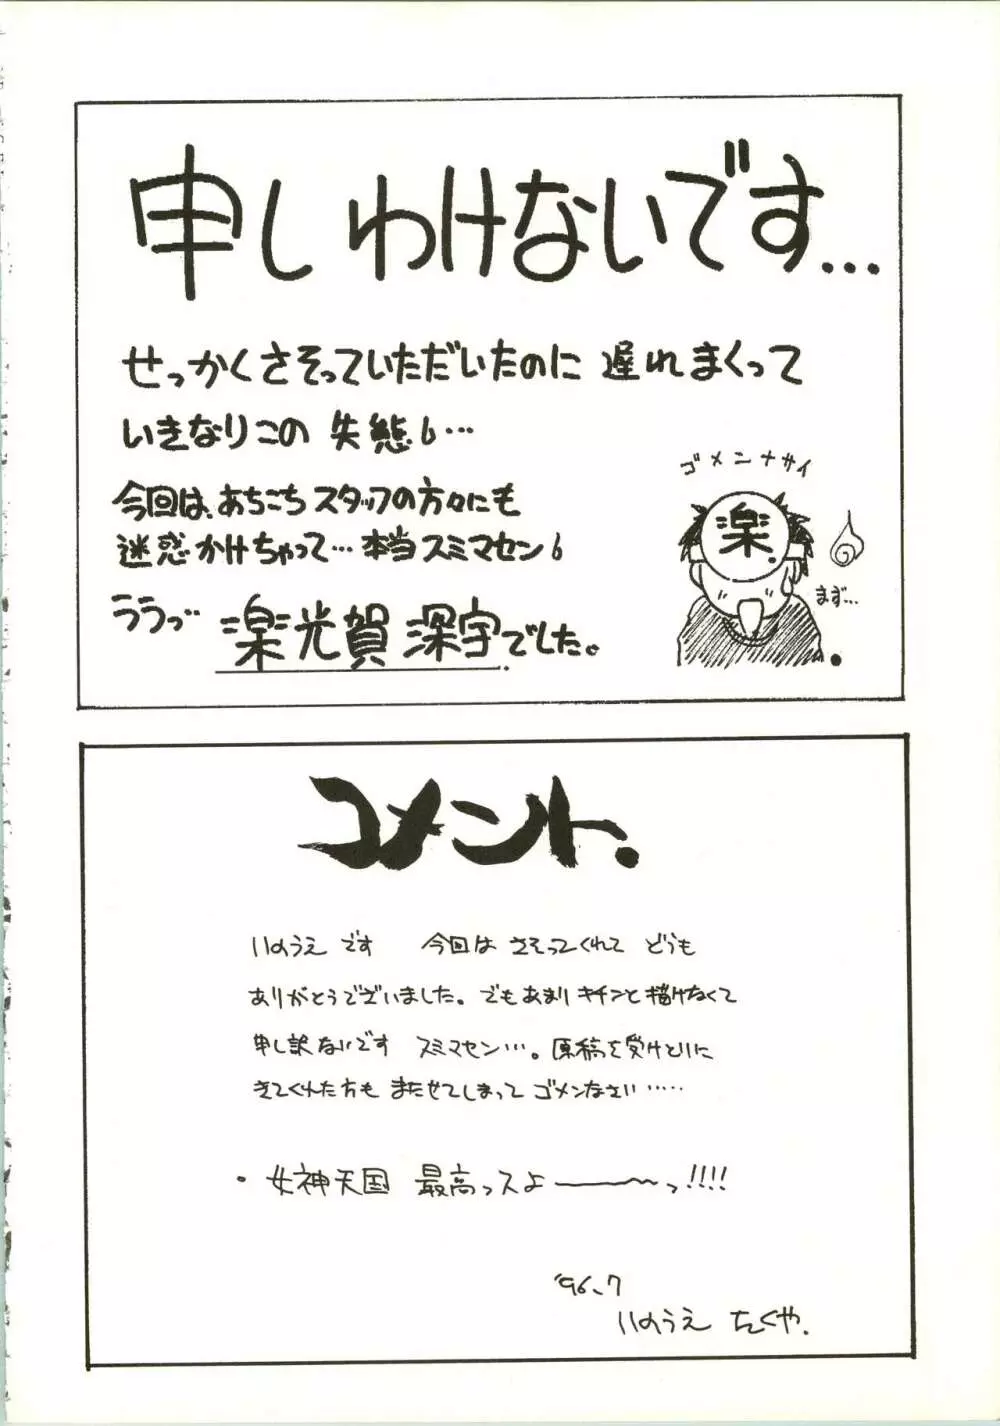 申しわけないです...
せっかくさそっていただいたのに 遅れまくって
いきなりこの 失態♭…
今回は、あちこちスタッフの方々にも
迷惑かけちゃって…本当スミマセン♭
ララっ… 楽光賀 深宇でした。
ゴメンナサイ
楽
まず…
コメント.
いのうえ です 今回は さそってくれて どうも
ありがとうございました。でもあまり キチンと描けなくて
申し訳ないです スミマセン…。原稿を受けとりに
きてくれた方も またせてしまって ゴメンなさい……
・女神天国 最高っスよ————〜っ!!!!
'96.7
いのうえ たくや.